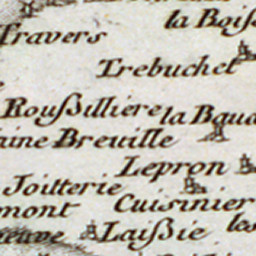 la Boiss
Travers
Trebuchet
Roussilliere la Baud
aine Breuille
Lepron
Joitterie
mont Cuisinier
neuve Laissie les